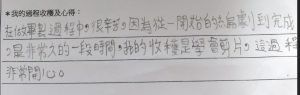 *我的過程收穫及心得:
在做故事製過程中。很辛苦。因為從一開始的編劇到完成
是非常久的一段時間。我的收穫是學會剪片。這過程
非常開心